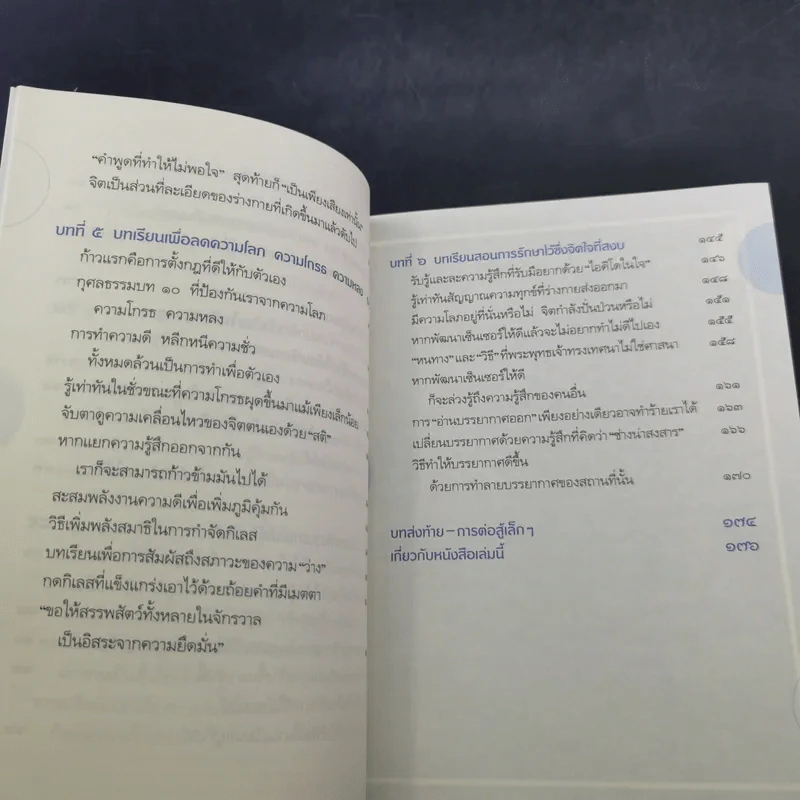 “คำพูดที่ทำให้ไม่พอใจ” สุดท้ายก็ “เป็นเพียงเสียงเท่านั้น”
จิตเป็นส่วนที่ละเอียดของร่างกายที่เกิดขึ้นมาแล้วดับไป
บทที่ ๕ บทเรียนเพื่อลดความโลภ ความโกรธ ความหลง
ก้าวแรกคือการตั้งกฎที่ดีให้กับตัวเอง
กุศลธรรมบท ๑๐ ที่ป้องกันเราจากความโลภ
ความโกรธ ความหลง
การทำความดี หลีกหนีความชั่ว
ทั้งหมดล้วนเป็นการทำเพื่อตัวเอง
รู้เท่าทันในชั่วขณะที่ความโกรธผุดขึ้นมาแม้เพียงเล็กน้อย
จับตาดูความเคลื่อนไหวของจิตตนเองด้วย “สติ”
หากแยกความรู้สึกออกจากกัน
เราก็จะสามารถก้าวข้ามมันไปได้
สะสมพลังงานความดีเพื่อเพิ่มภูมิคุ้มกัน
วิธีเพิ่มพลังสมาธิในการกำจัดกิเลส
บทเรียนเพื่อการสัมผัสถึงสภาวะของความ “ว่าง”
กดกิเลสที่แข็งแกร่งเอาไว้ด้วยถ้อยคำที่มีเมตตา
“ขอให้สรรพสัตว์ทั้งหลายในจักรวาล
เป็นอิสระจากความยึดมั่น”
บทที่ ๖ บทเรียนสอนการรักษาไว้ซึ่งจิตใจที่สงบ ๑๔๕
รับรู้และละความรู้สึกที่รับมือยากด้วย “ไอดีโดในใจ” ๑๔๖
รู้เท่าทันสัญญาณความทุกข์ที่ร่างกายส่งออกมา ๑๔๘
มีความโลภอยู่ที่นั่นหรือไม่ จิตกำลังปั่นป่วนหรือไม่ ๑๕๑
หากพัฒนาเซ็นเซอร์ให้ดีแล้วจะไม่อยากทำไม่ดีไปเอง ๑๕๕
“หนทาง” และ “วิธี” ที่พระพุทธเจ้าทรงเทศนาไม่ใช่ศาสนา ๑๕๘
หากพัฒนาเซ็นเซอร์ให้ดี
ก็จะล่วงรู้ถึงความรู้สึกของคนอื่น ๑๖๑
การ “อ่านบรรยากาศออก” เพียงอย่างเดียวอาจทำร้ายเราได้ ๑๖๓
เปลี่ยนบรรยากาศด้วยความรู้สึกที่คิดว่า “ช่างน่าสงสาร” ๑๖๖
วิธีทำให้บรรยากาศดีขึ้น
ด้วยการทำลายบรรยากาศของสถานที่นั้น ๑๗๐
บทส่งท้าย – การต่อสู้เล็ก ๆ ๑๗๔
เกี่ยวกับหนังสือเล่มนี้ ๑๗๖